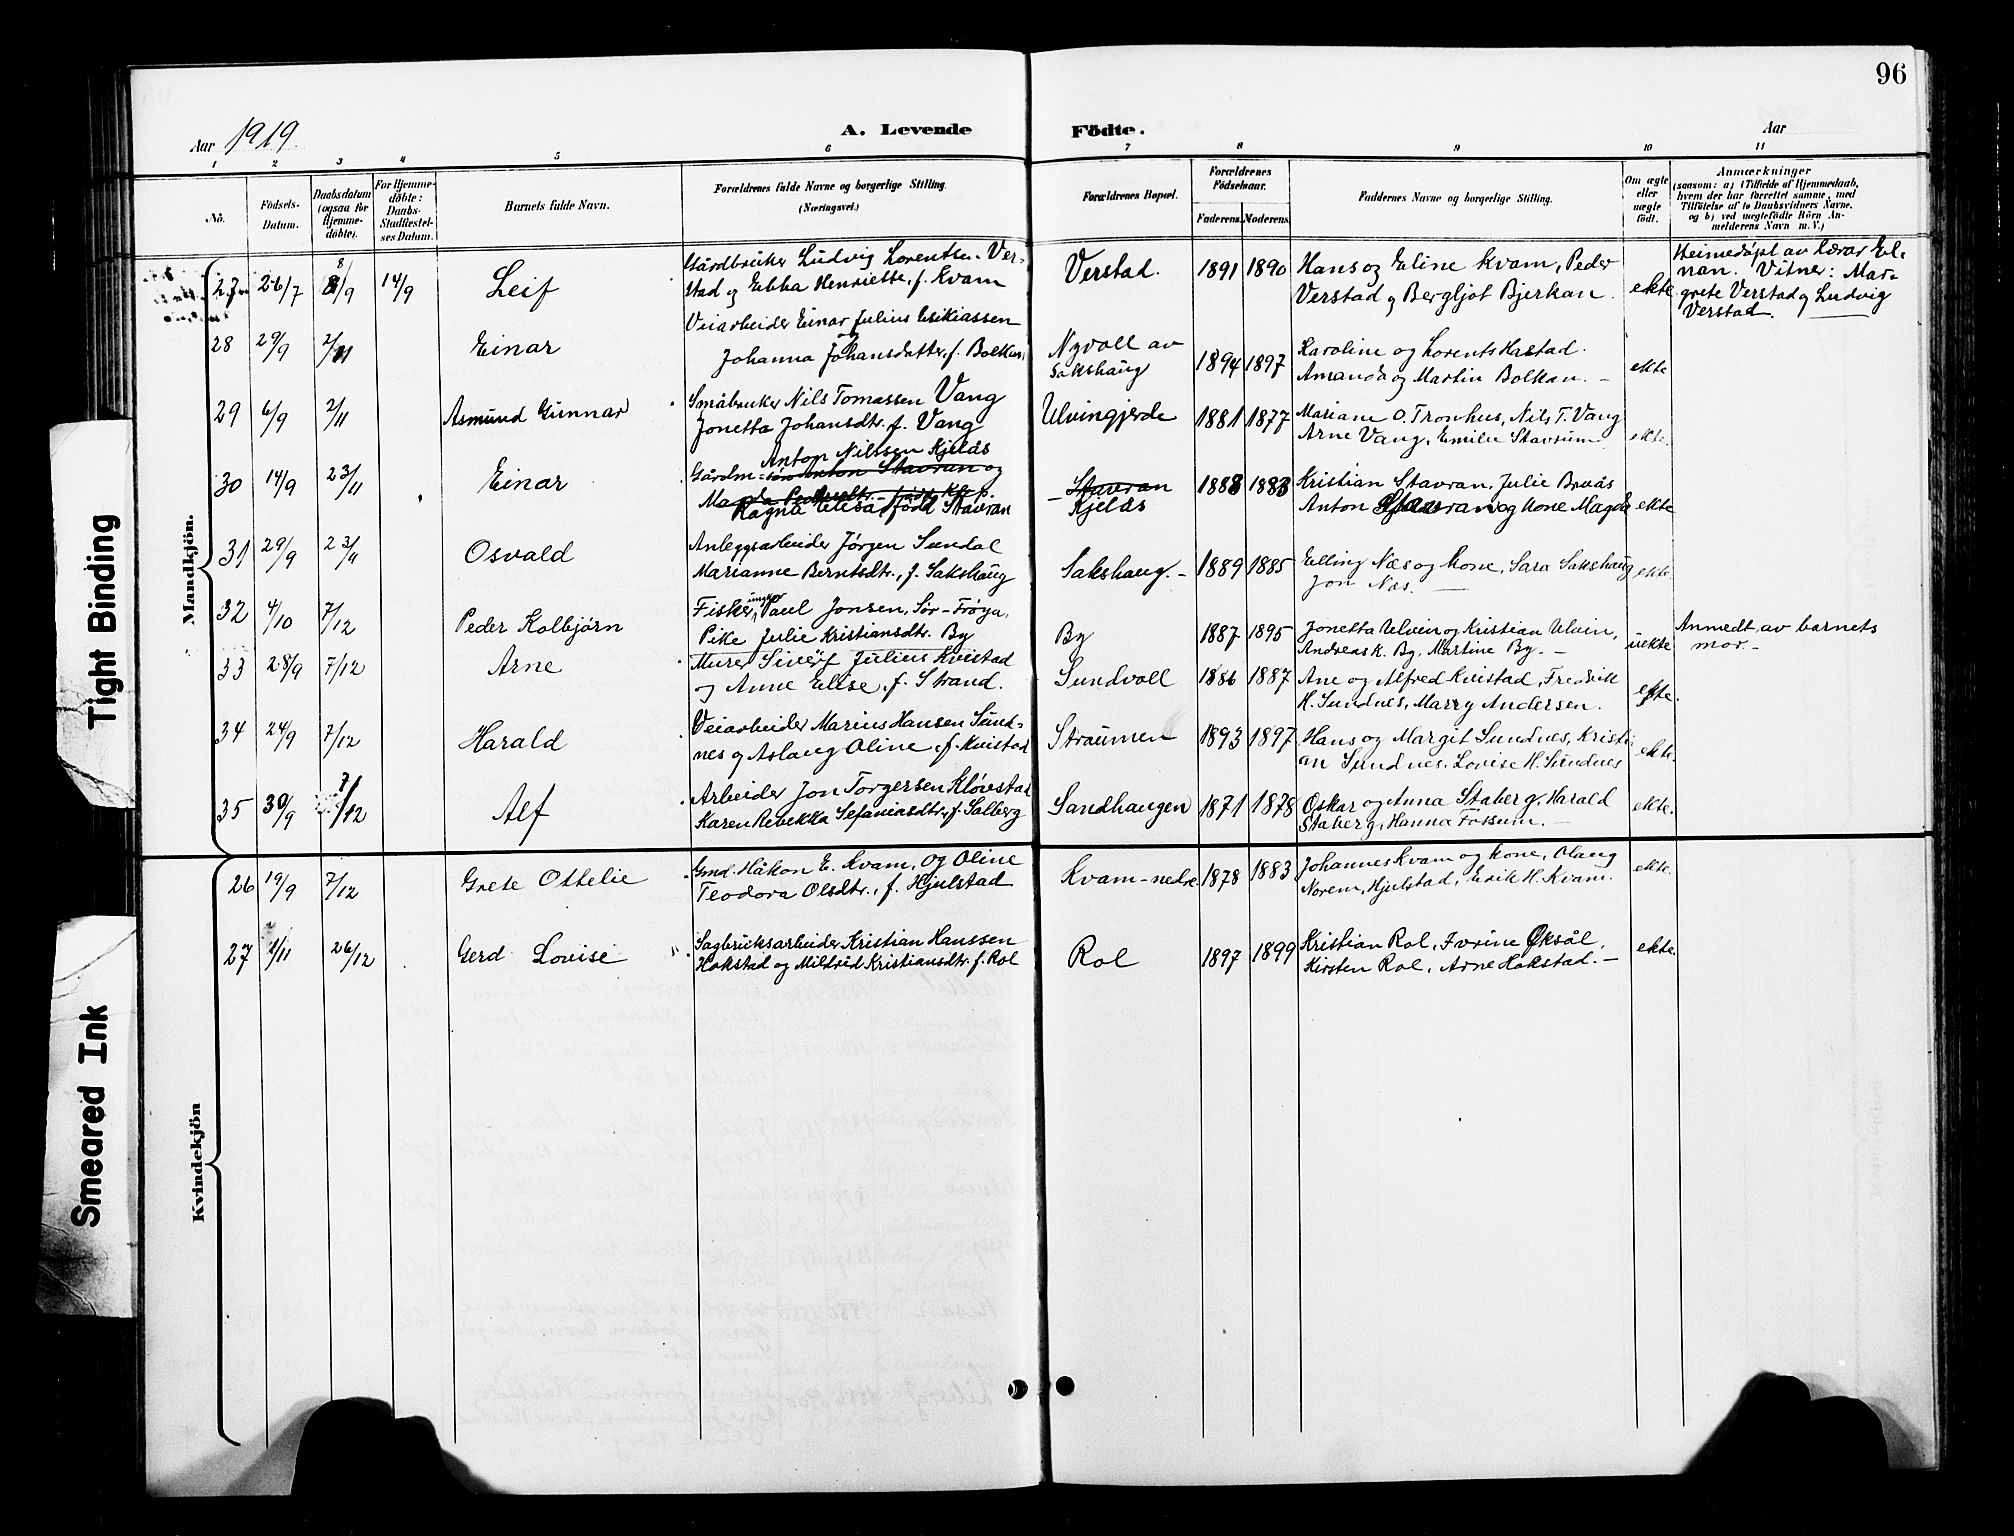 96
Aar 1919.
A. Levende Födte.
Aar
1 2 3 4 5 6 7 8 9 10 11
No.
Födsels-Datum.
Daabsdatum (ogsaa for Hjemme-döbte).
For Hjemme-döbte: Daabs-Stadfæstel-ses Datum.
Barnets fulde Navn.
Forældrenes fulde Navne og borgerlige Stilling.
(Næringsvei.)
Forældrenes Bopæl.
Forældrenes Födselsaar.
Faderens. Moderens.
Faddernes Navne og borgerlige Stilling.
Om ægte eller uægte födt.
Anmærkninger
(saasom: a) i Tilfælde af Hjemmedaab, hvem der har forrettet samme, med Tilföielse af to Daabsvidners Navne, og b) ved uægtefödte Börn Anmelderens Navn m. V.)
Mandkjön.
27 26/7 8/9 14/9 Leif
Gårdbruker Ludvig Lorentsen Ver-
stad og Ebba Henriette, f. Kvam
Verstad. 1891 1890
Hans og Eline Kvam, Peder
Verstad og Bergljot Bjerkan.
ekte
Heimedøpt av lærar El-
nan. Vitner: Mar-
grete Verstad og Ludvig
Verstad.
28 29/9 2/11 Einar
Veiarbeider Einar Julius Esikiassen
og Johanna Johansdatter, f. Bolkan
Nyvoll av
Sakshaug
1894 1897
Karoline og Lorents Hastad.
Amanda og Martin Bolkan. –
ekte
29 6/9 2/11 Asmund Gunnar
Småbruker Nils Tomassen Vang
Jonetta Johansdtr. f. Vang
Ulvingjerde 1881 1877
Mariane O. Tronhus, Nils T. Vang
Arne Vang, Emilie Stavrum
ekte.
30 14/9 23/11 Einar
Anton Nilssen Kjelås
Gårdm. Anton Stavran og
Ragna Elisa, født Stavran
Stavran
Kjelås
1888 1883
Kristian Stavran, Julie Bruås
Anton Stavran og kone Magda
ekte
31 29/9 23/11 Osvald
Anleggsarbeider Jørgen Sundal
Marianne Berntsdtr., f. Sakshaug
Sakshaug. – 1889 1885
Elling Næs og kone, Sara Sakshaug
Jon Næs.
ekte.
32 4/10 7/12 Peder Kolbjørn
Fisker, ungkar Paul Jonsen, Sør-Frøya,
Pike Julie Kristiansdtr. By
By 1887 1895
Jonetta Ulvin og Kristian Ulvin,
Andreas K. By, Martine By. –
uekte
Anmedt av barnets
mor. –
33 28/9 7/12 Arne
Murer Siverf Julius Kvistad
og Anne Elise, f. Strand.
Sundvoll 1886 1887
Ane og Alfred Kvistad, Fredrik
H. Sundnes, Marry Andersen.
ekte.
34 24/9 7/12 Harald
Veiarbeider Marius Hansen Sund-
nes og Aslaug Oline, f. Kvistad
Straumen 1893 1897
Hans og Margit Sundnes, Kristi-
an Sundnes, Lovise H. Sundnes
ekte.
35 30/9 7/12 Alf
Arbeider Jon Torgersen Kløvstad
Karen Rebekka Sefaniasdtr, f. Salberg
Sandhaugen 1871 1878
Oskar og Anna Staberg, Harald
Staberg, Hanna Fossum. –
ekte.
Kvindekjön
26 19/9 7/12 Grete Ottelie
Gmd. Håkon E. Kvam, og Oline
Teodora Olsdtr., f. Hjulstad
Kvam-nedre 1878 1883
Johannes Kvam og kone, Olaug
Norem, Hjulstad, Erik H. Kvam.
ekte.
27 1/11 26/12 Gerd Lovise
Sagbruksarbeider Kristian Hanssen
Hokstad og Mildrid Kristiansdtr. f. Rol
Rol 1897 1899
Kristian Rol, Furine Øksål,
Kirsten Rol, Arne Hokstad. –
ekte.
Tight Binding
Smeared Ink